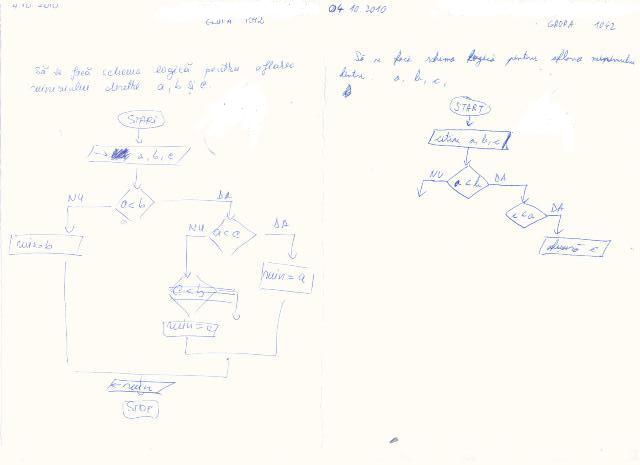 4.10.2010
GRUPA 1042
Să se facă schema logică pentru aflarea
minimului dintre a, b și c.
START
a, b, c
NU
a<b
DA
min=b
NU
a<c
DA
min = a
c<b
min = c
min
STOP
04.10.2010
GRUPA 1042
Să se facă schema logică pentru aflarea minimului
dintre a, b, c,
START
citim a, b, c
NU
a<b
DA
c<a
DA
c